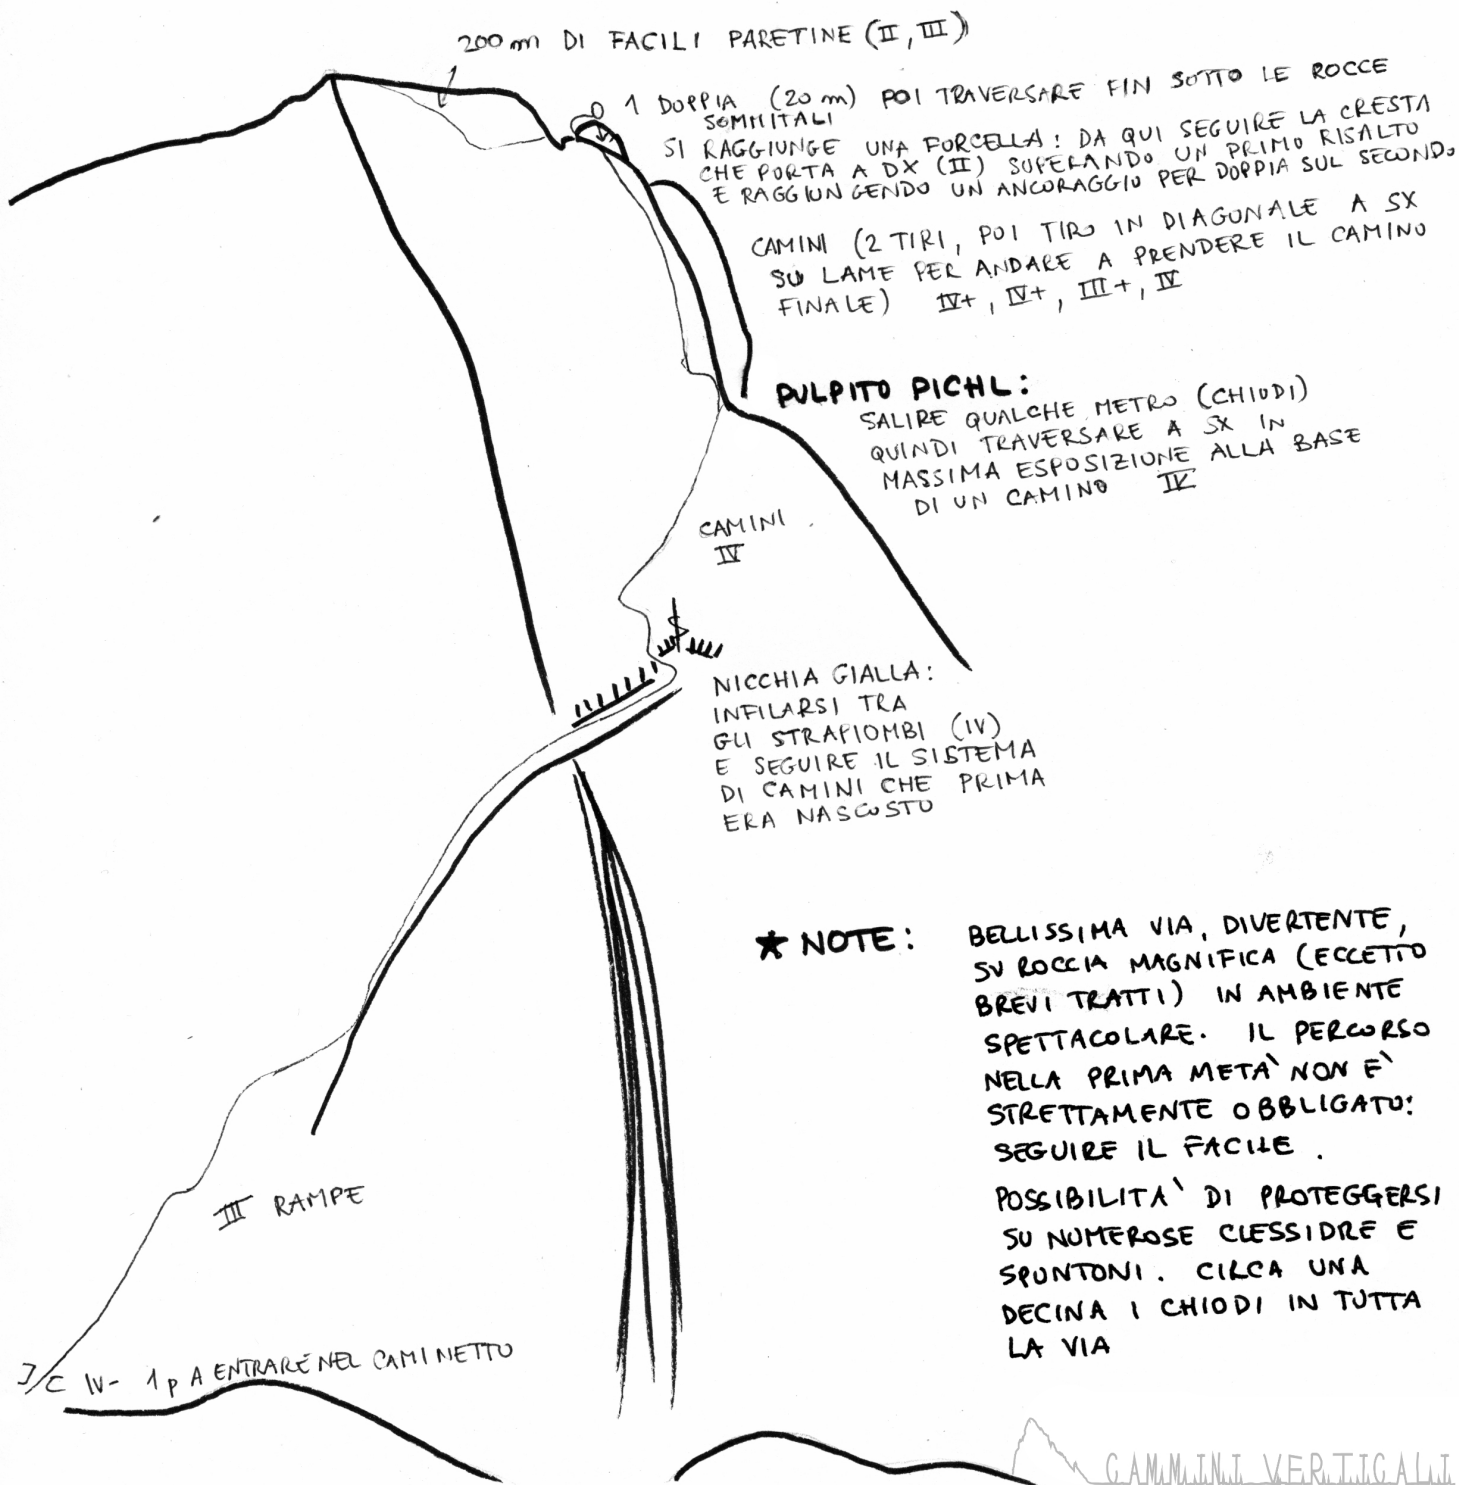 200 m DI FACILI PARETINE (II, III)
1 DOPPIA (20 m) POI TRAVERSARE FIN SOTTO LE ROCCE
SOMMITALI
SI RAGGIUNGE UNA FORCELLA: DA QUI SEGUIRE LA CRESTA
CHE PORTA A DX (II) SUPERANDO UN PRIMO RISALTO
E RAGGIUNGENDO UN ANCORAGGIO PER DOPPIA SUL SECONDO
CAMINI (2 TIRI, POI TIRO IN DIAGONALE A SX
SU LAME PER ANDARE A PRENDERE IL CAMINO
FINALE) IV+, IV+, III+, IV
PULPITO PICHL:
SALIRE QUALCHE METRO (CHIODI)
QUINDI TRAVERSARE A SX IN
MASSIMA ESPOSIZIONE ALLA BASE
DI UN CAMINO IV
CAMINI
IV
NICCHIA GIALLA:
INFILARSI TRA
GLI STRAPIOMBI (IV)
E SEGUIRE IL SISTEMA
DI CAMINI CHE PRIMA
ERA NASCOSTO
★ NOTE: BELLISSIMA VIA, DIVERTENTE,
SU ROCCIA MAGNIFICA (ECCETTO
BREVI TRATTI) IN AMBIENTE
SPETTACOLARE. IL PERCORSO
NELLA PRIMA METÀ NON È
STRETTAMENTE OBBLIGATO:
SEGUIRE IL FACILE.
POSSIBILITÀ DI PROTEGGERSI
SU NUMEROSE CLESSIDRE E
SPUNTONI. CIRCA UNA
DECINA I CHIODI IN TUTTA
LA VIA
III RAMPE
IV- 1p A ENTRARE NEL CAMINETTO
CAMMINI VERTICALI